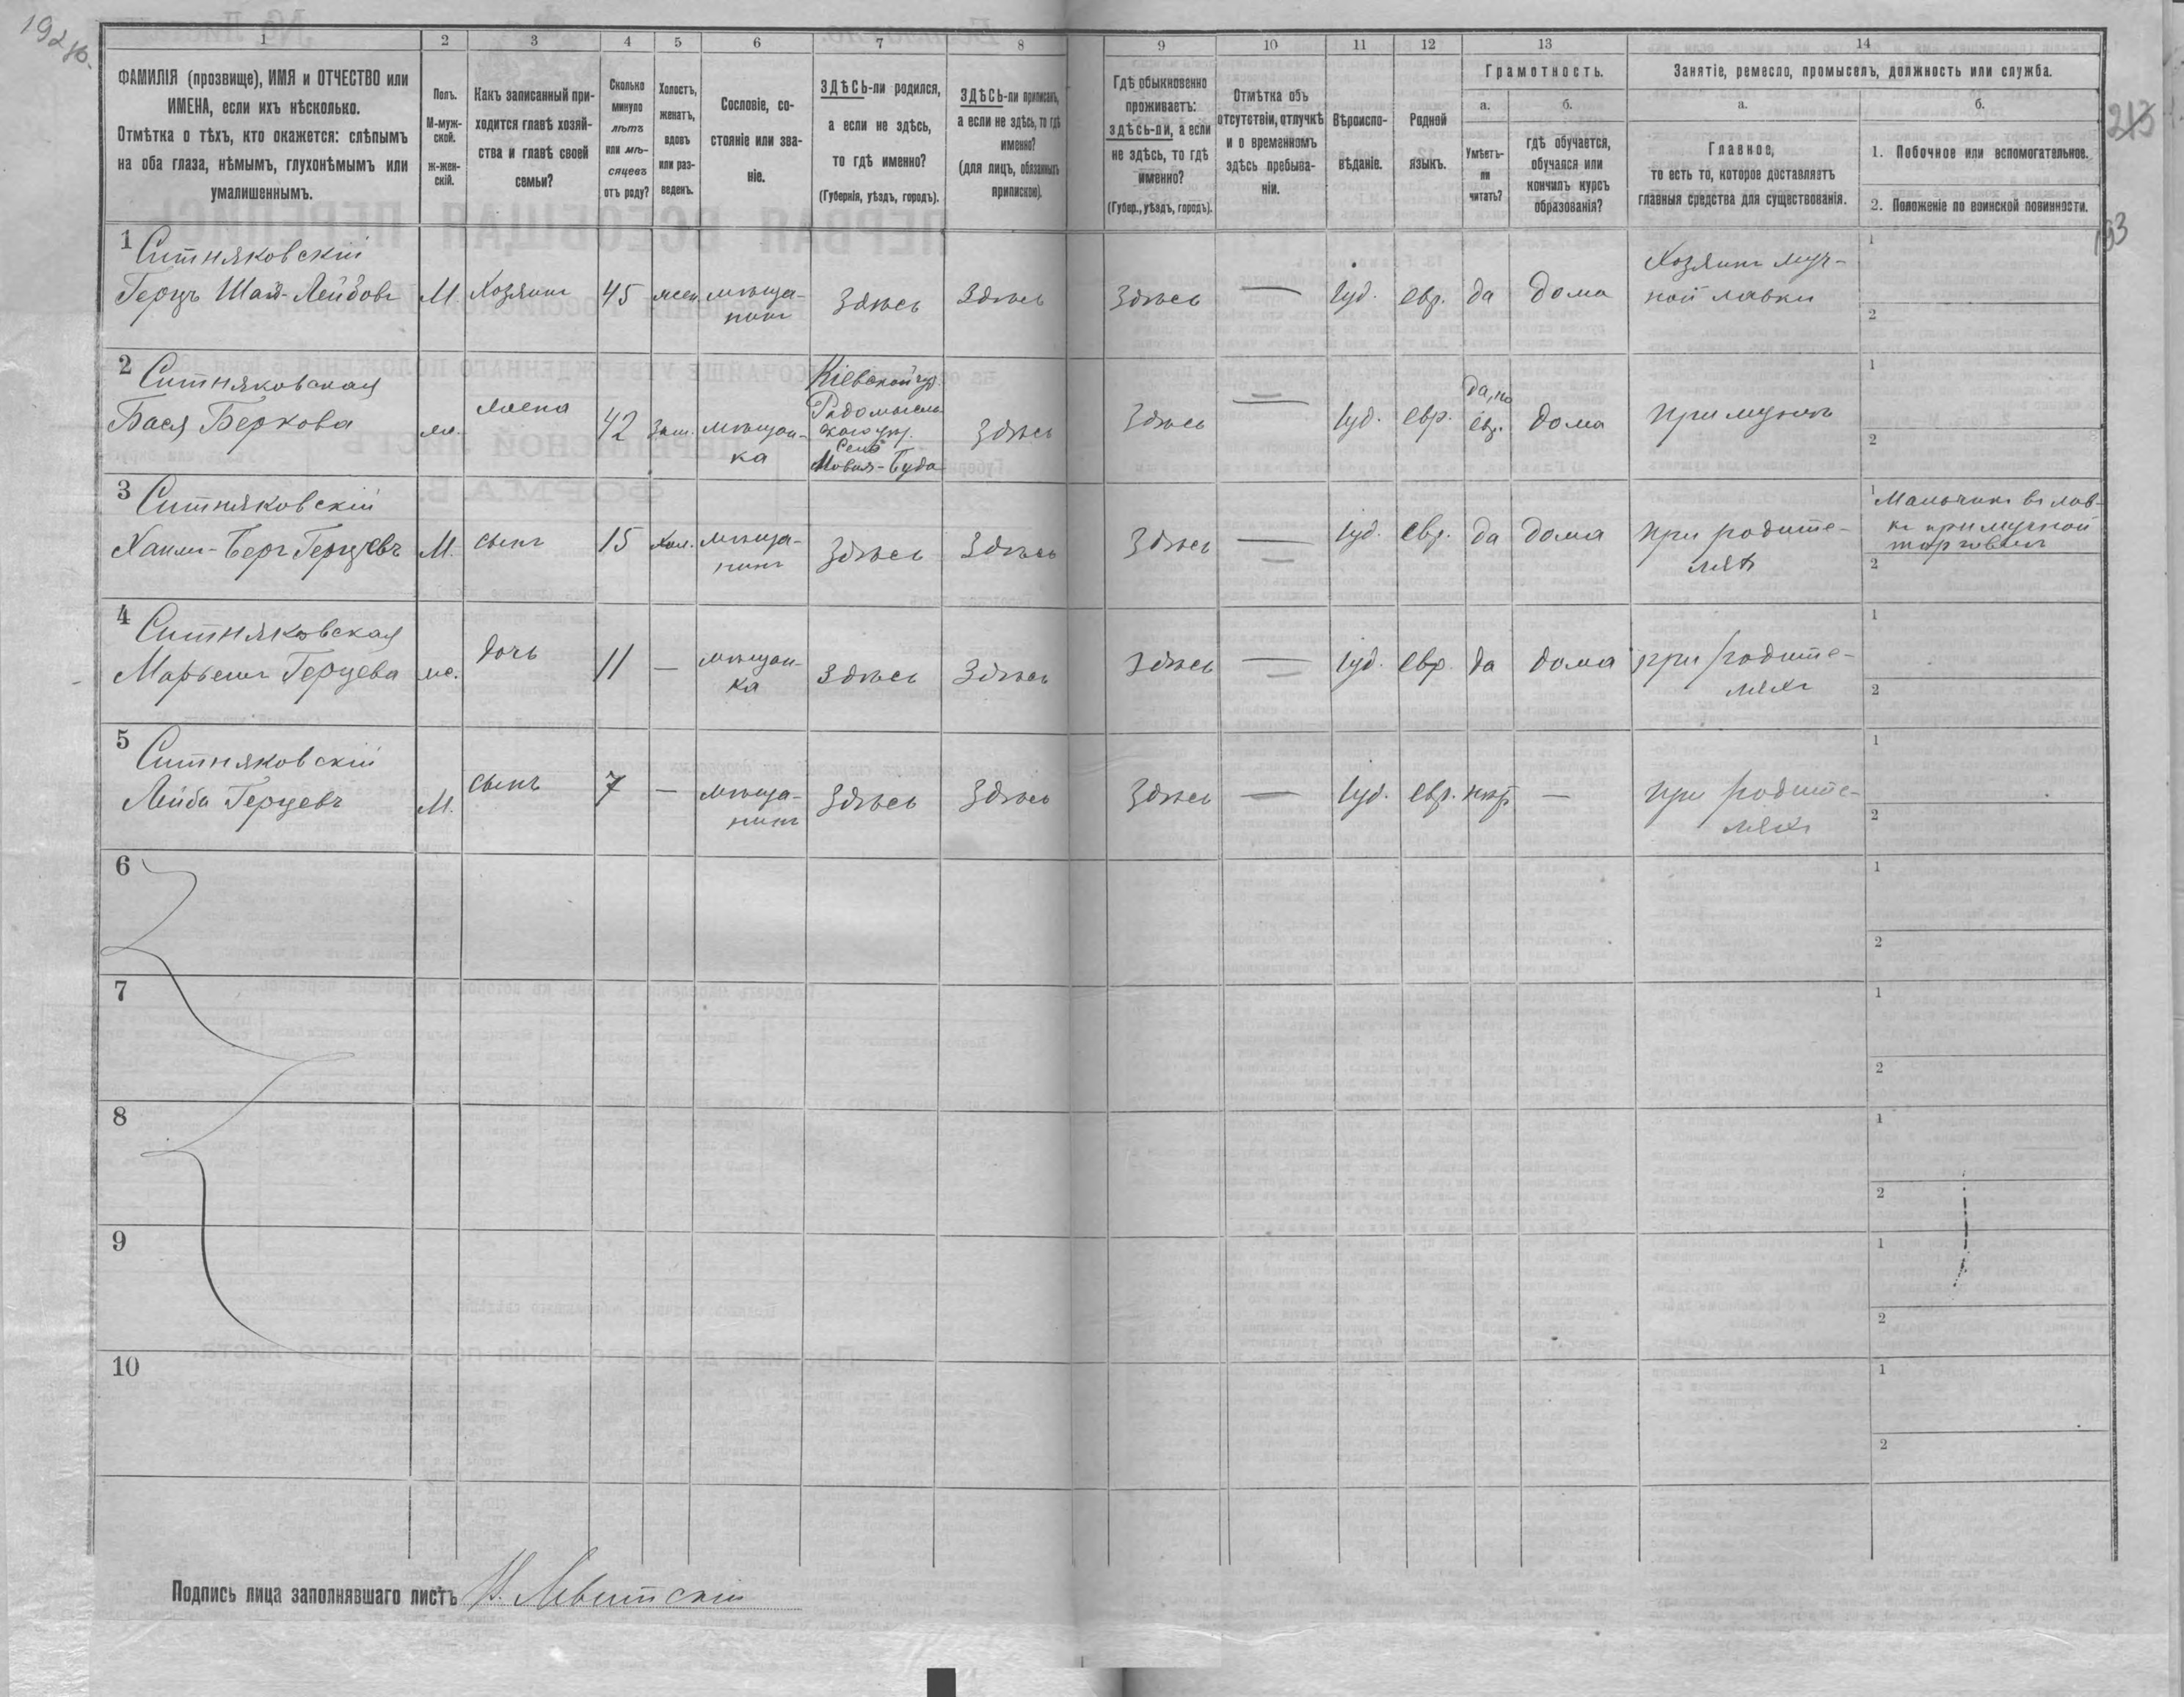 192 об.
1 2 3 4 5 6 7 8 9 10 11 12 13 14
ФАМИЛІЯ (прозвище), ИМЯ и ОТЧЕСТВО или
ИМЕНА, если ихъ нѣсколько.
Отмѣтка о тѣхъ, кто окажется: слѣпымъ
на оба глаза, нѣмымъ, глухонѣмымъ или
умалишеннымъ.
Полъ.
М-муж-
ской.
ж-жен-
скій.
Какъ записанный при-
ходится главѣ хозяй-
ства и главѣ своей
семьи?
Сколько
минуло
лѣтъ
или мѣ-
сяцевъ
отъ роду?
Холостъ,
женатъ,
вдовъ
или раз-
веденъ.
Сословіе, со-
стояніе или зва-
ніе.
ЗДѢСЬ-ли родился,
а если не здѣсь,
то гдѣ именно?
(Губернія, уѣздъ, городъ).
ЗДѢСЬ-ли приписанъ,
а если не здѣсь, то гдѣ
именно?
(для лицъ, обязанныхъ
припискою).
Гдѣ обыкновенно
проживаетъ:
здѣсь-ли, а если
не здѣсь, то гдѣ
именно?
(Губер., уѣздъ, городъ).
Отмѣтка объ
отсутствіи, отлучкѣ
и о временномъ
здѣсь пребыва-
ніи.
Вѣроиспо-
вѣданіе.
Родной
языкъ.
Грамотность.
а.
Умѣетъ-
ли
читать?
б.
гдѣ обучается,
обучался или
кончилъ курсъ
образованія?
Занятіе, ремесло, промыселъ, должность или служба.
а.
Главное,
то есть то, которое доставляетъ
главныя средства для существованія.
б.
1. Побочное или вспомогательное.
2. Положеніе по воинской повинности.
213
193
1 Ситняковскій
Герцъ Шая-Лейбовъ М. Хозяинъ 45 жен. мѣща-
нинъ Здѣсь Здѣсь Здѣсь — Іуд. евр. да дома Хозяинъ муч-
ной лавки
1
2
2 Ситняковская
Бася Беркова ж. жена 42 Зам. мѣщан-
ка
Кіевской губ.
Радомысль-
скаго уѣз.
Село
Новая-Буда
Здѣсь Здѣсь — Іуд. евр. да, по
евр. дома при мужѣ
1
2
3 Ситняковскій
Хаимъ-Беръ Герцевъ М. сынъ 15 хол. мѣща-
нинъ Здѣсь Здѣсь Здѣсь — Іуд. евр. да дома при родите-
ляхъ
1 Мальчикъ въ лав-
кѣ при мучной
торговлѣ
2
4 Ситняковская
Марьемъ Герцева ж. дочь 11 — мѣщан-
ка Здѣсь Здѣсь Здѣсь — Іуд. евр. да дома при родите-
ляхъ
1
2
5 Ситняковскій
Лейба Герцевъ М. сынъ 7 — мѣща-
нинъ Здѣсь Здѣсь Здѣсь — Іуд. евр. нѣт — при родите-
ляхъ
1
2
6
1
2
7
1
2
8
1
2
9
1
2
10
1
2
Подпись лица заполнявшаго листъ Левитскій